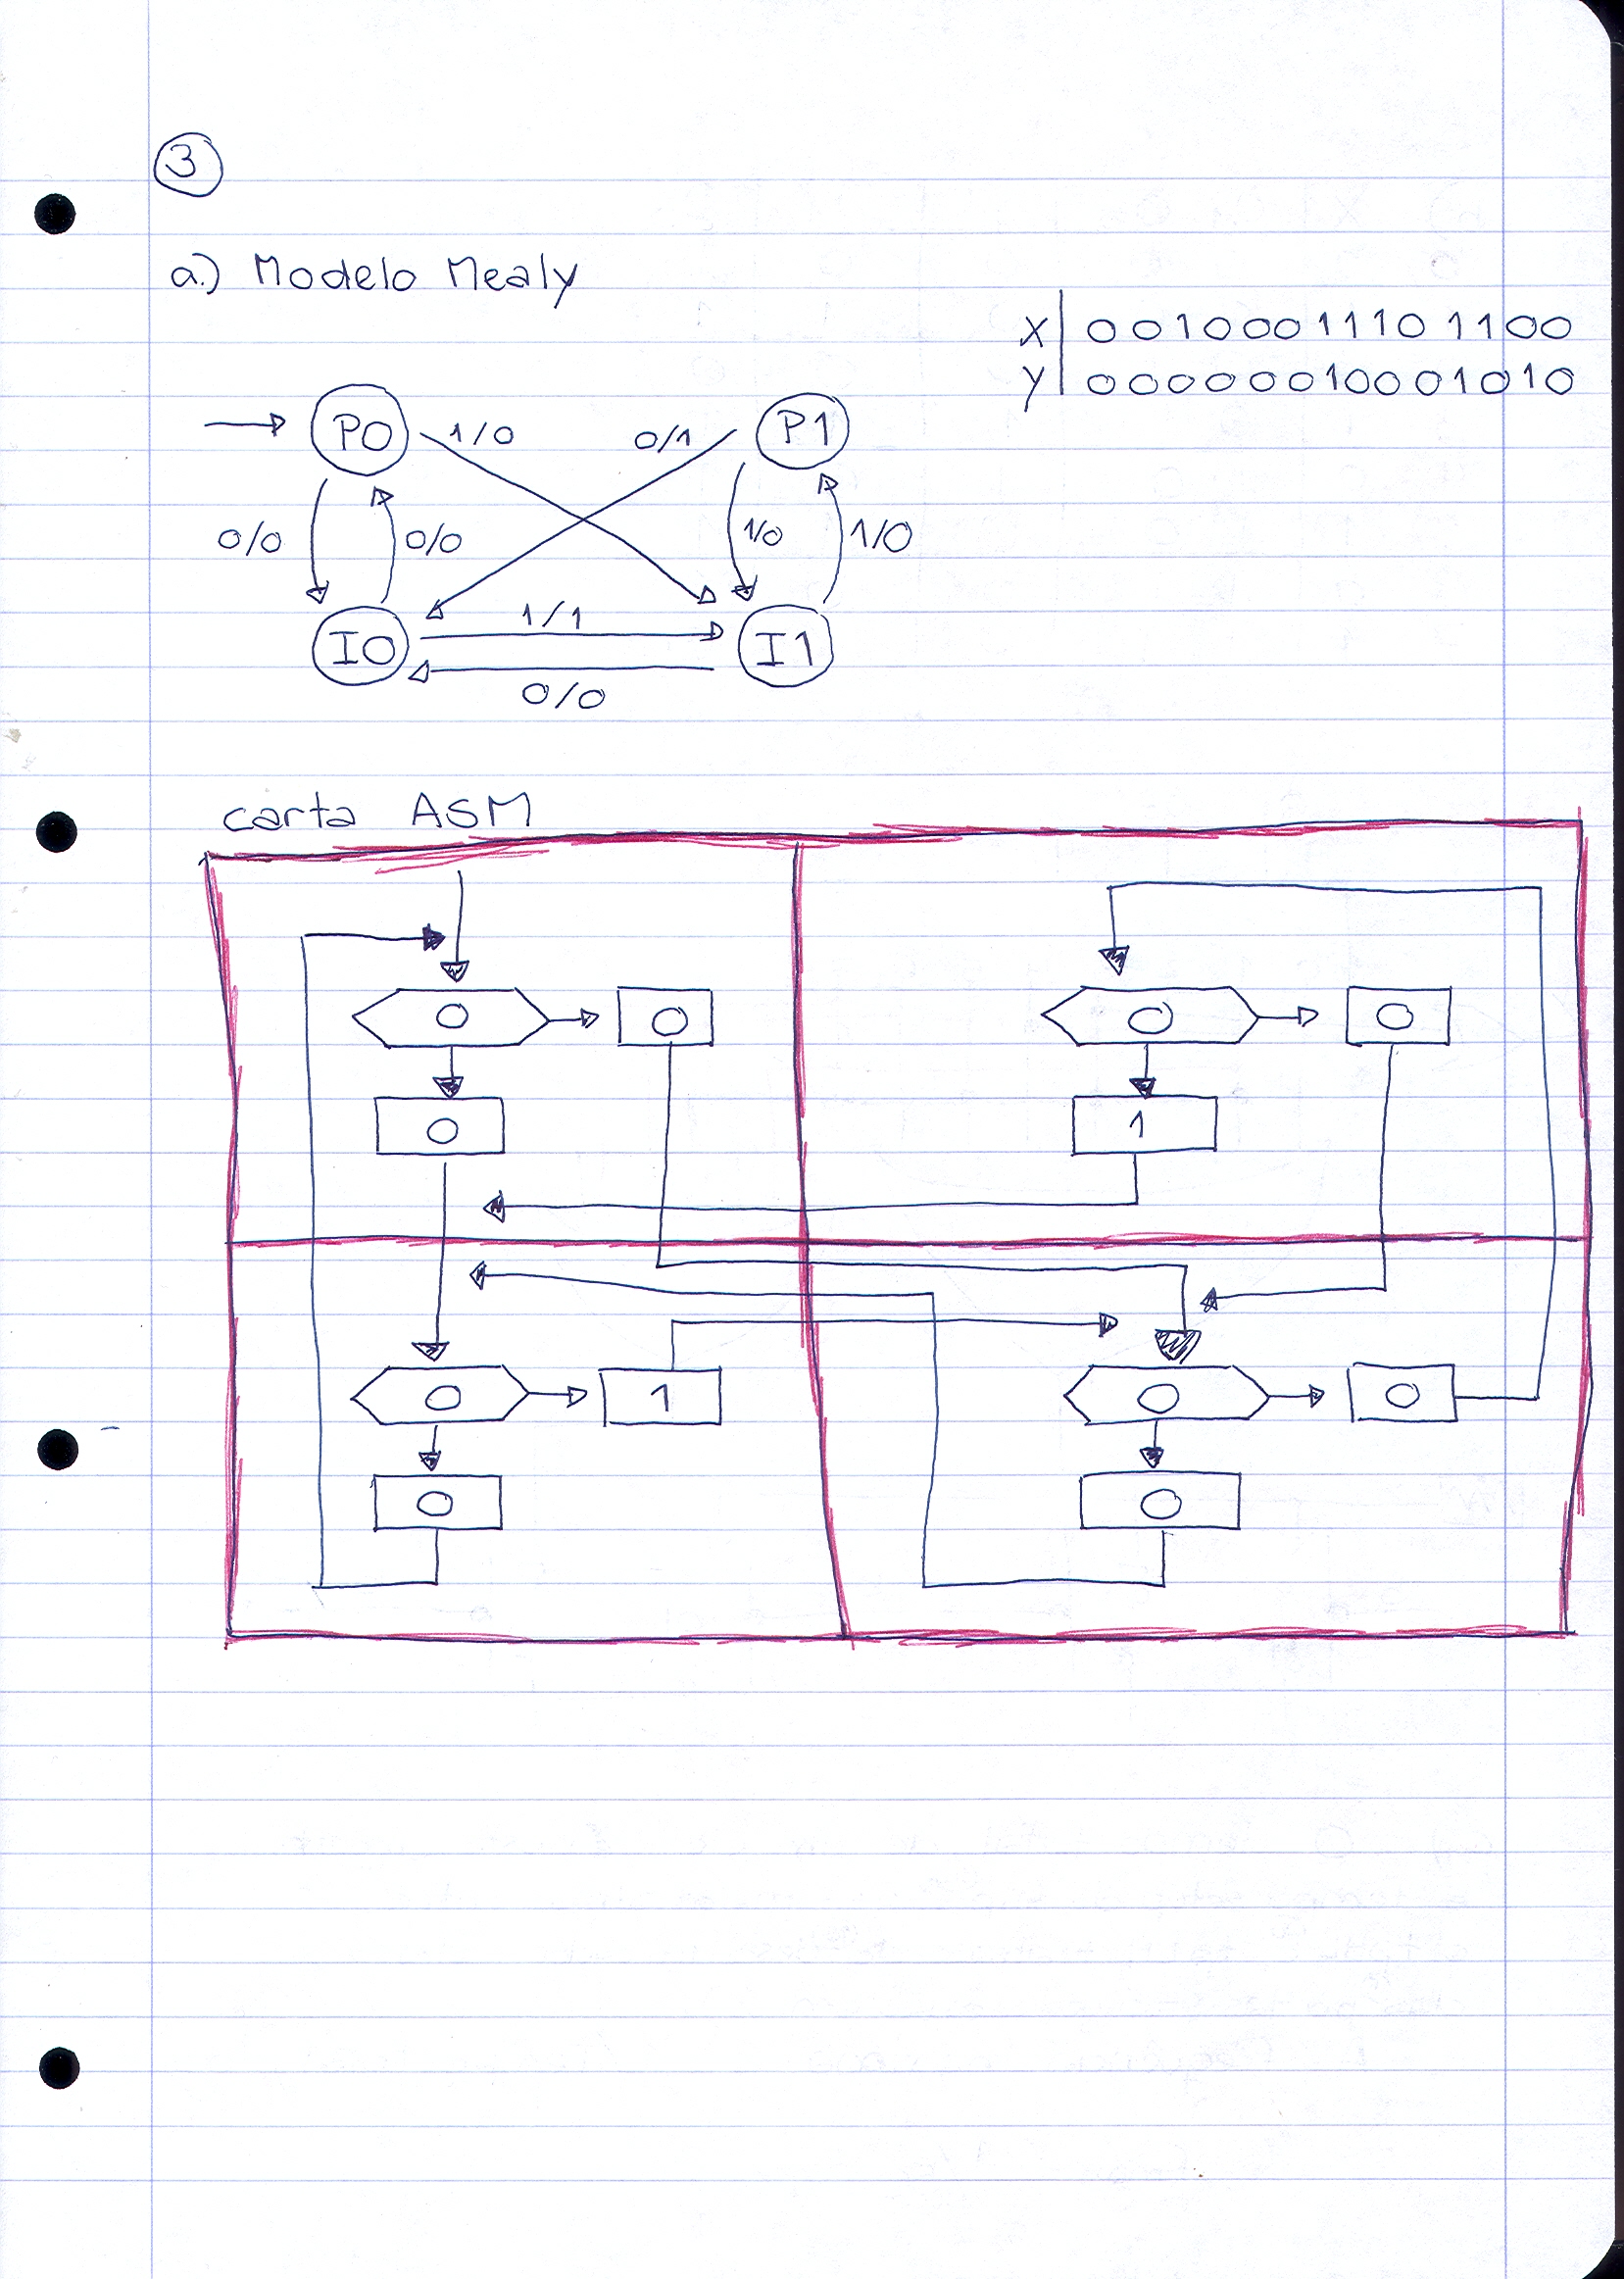 3
a.) Modelo Mealy
x | 0 0 1 0 0 0 1 1 1 0 1 1 0 0
y | 0 0 0 0 0 0 1 0 0 0 1 0 1 0
P0 1/0 0/1 P1
0/0 0/0 1/0 1/0
1/1
I0 I1
0/0
carta ASM
0 0 0 0
0 1
0 1 0 0
0 0